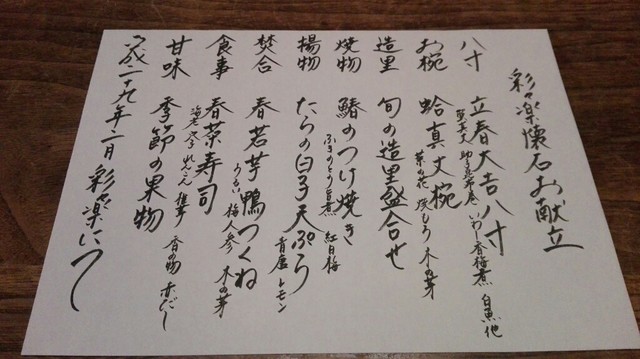 彩々楽懐石お献立
八寸 立春大吉八寸
いわし香梅煮 白魚他
お椀 蛤真丈椀
菜の花 木の芽
造里 旬の造里盛合せ
焼物 鰆のつけ焼き
ふきのとう旨煮 紅白梅
揚物 たらの白子天ぷら
青唐 レモン
焚合 春若芋鴨つくね
うるい 梅人参 木の芽
食事 春菜寿司
海老 穴子 れんこん 椎茸 香の物 赤だし
甘味 季節の果物
平成二十九年二月 彩々楽にっし